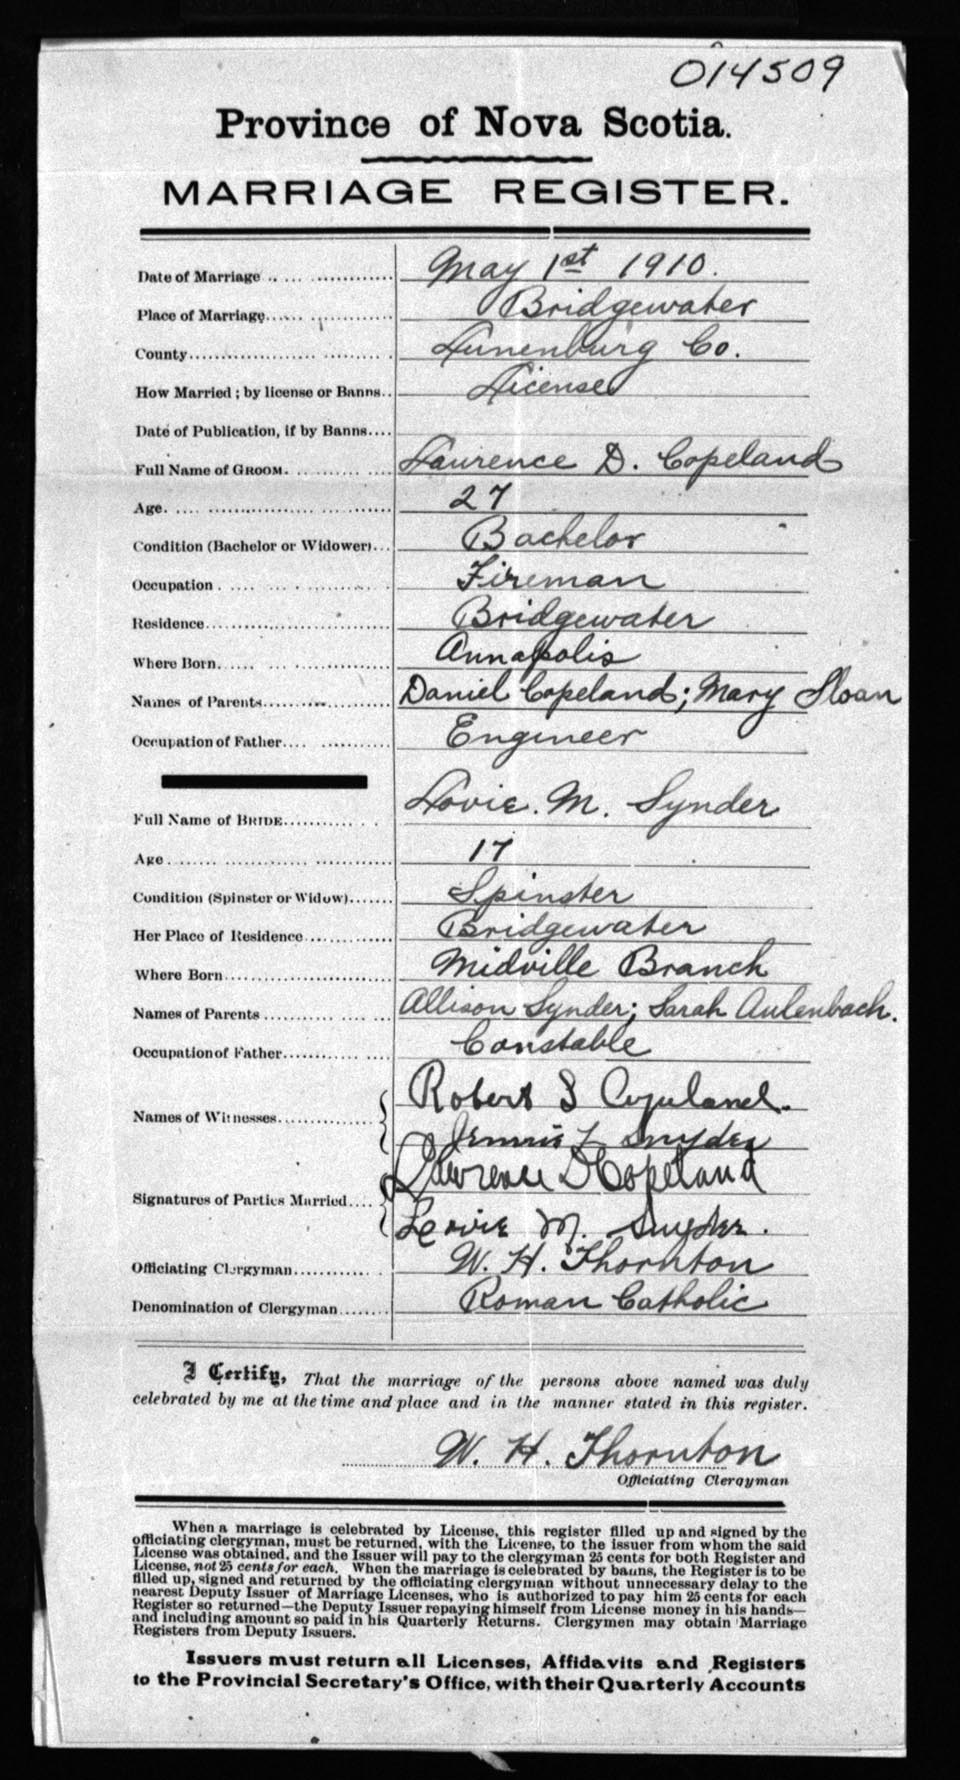 014509
Province of Nova Scotia.
MARRIAGE REGISTER.
Date of Marriage May 1st 1910.
Place of Marriage Bridgewater
County Lunenburg Co.
How Married; by license or Banns.. License
Date of Publication, if by Banns....
Full Name of GROOM. Laurence D. Copeland
Age. 27
Condition (Bachelor or Widower)... Bachelor
Occupation Fireman
Residence Bridgewater
Where Born Annapolis
Names of Parents Daniel Copeland; Mary Sloan
Occupation of Father Engineer
Full Name of BRIDE Lovie. M. Synder
Age 17
Condition (Spinster or Widow) Spinster
Her Place of Residence Bridgewater
Where Born Midville Branch
Names of Parents Allison Synder; Sarah Aulenbach.
Occupation of Father Constable
Names of Witnesses Robert S Copeland.
Jennie L Snyder
Signatures of Parties Married Lawrence D Copeland
Lovie M. Snyder.
Officiating Clergyman W. H. Thornton
Denomination of Clergyman Roman Catholic
I Certify, That the marriage of the persons above named was duly
celebrated by me at the time and place and in the manner stated in this register.
W. H. Thornton
Officiating Clergyman
When a marriage is celebrated by License, this register filled up and signed by the
officiating clergyman, must be returned, with the License, to the issuer from whom the said
License was obtained, and the Issuer will pay to the clergyman 25 cents for both Register and
License, not 25 cents for each. When the marriage is celebrated by banns, the Register is to be
filled up, signed and returned by the officiating clergyman without unnecessary delay to the
nearest Deputy Issuer of Marriage Licenses, who is authorized to pay him 25 cents for each
Register so returned—the Deputy Issuer repaying himself from License money in his hands—
and including amount so paid in his Quarterly Returns. Clergymen may obtain Marriage
Registers from Deputy Issuers.
Issuers must return all Licenses, Affidavits and Registers
to the Provincial Secretary's Office, with their Quarterly Accounts